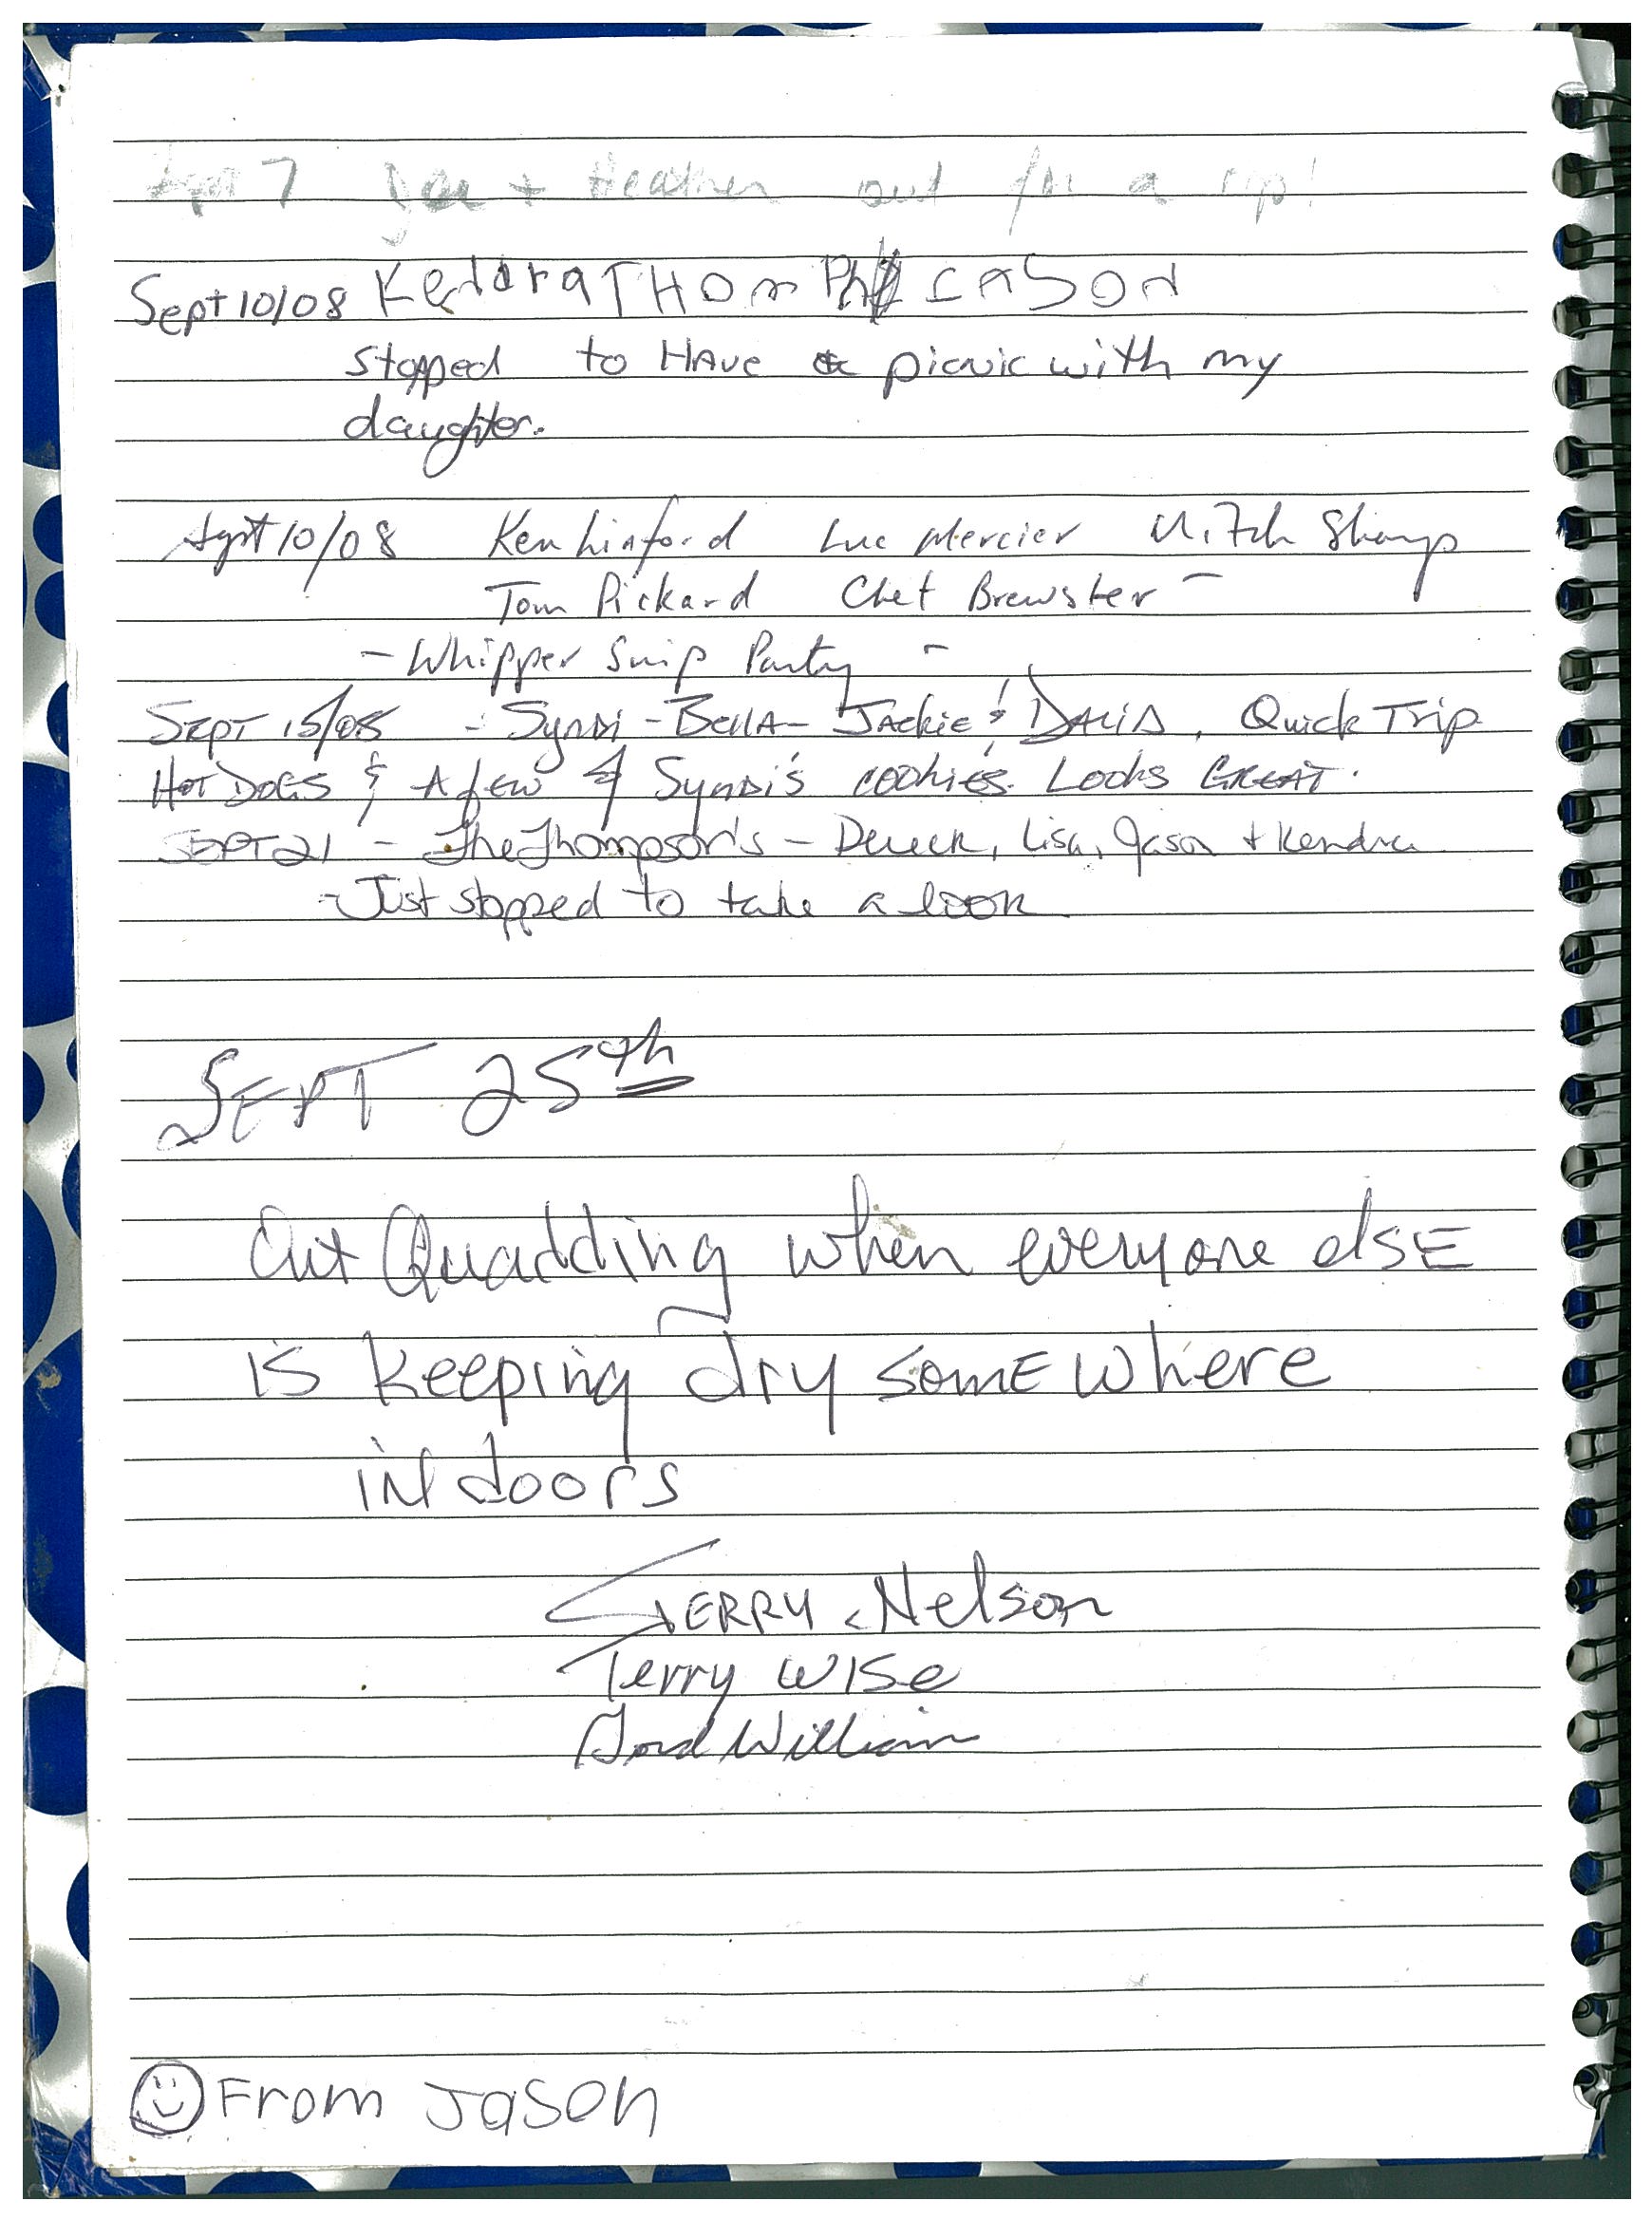 Sept 7 Joe + Heather out for a rip!
Sept 10/08 Kendra THOM
stopped to HAVE a picnic with my
daughter.
Sept 10/08 Ken Linford Luc Mercier Mitch Sharp
Tom Pickard Chet Brewster -
- Whipper Snip Party -
SEPT 15/08 - SYNDI - BELLA - JACKIE & DALIA, Quick Trip
HOT DOGS & A few of SYNDI'S cookies. Looks GREAT.
SEPT 21 - The Thompson's - Dereck, Lisa, Jason + Kendra
- Just stopped to take a look
SEPT 25th
Out Quadding when everyone elsE
is keeping dry somEwhere
indoors
GERRY Nelson
Terry Wise
Gord William
From Jason